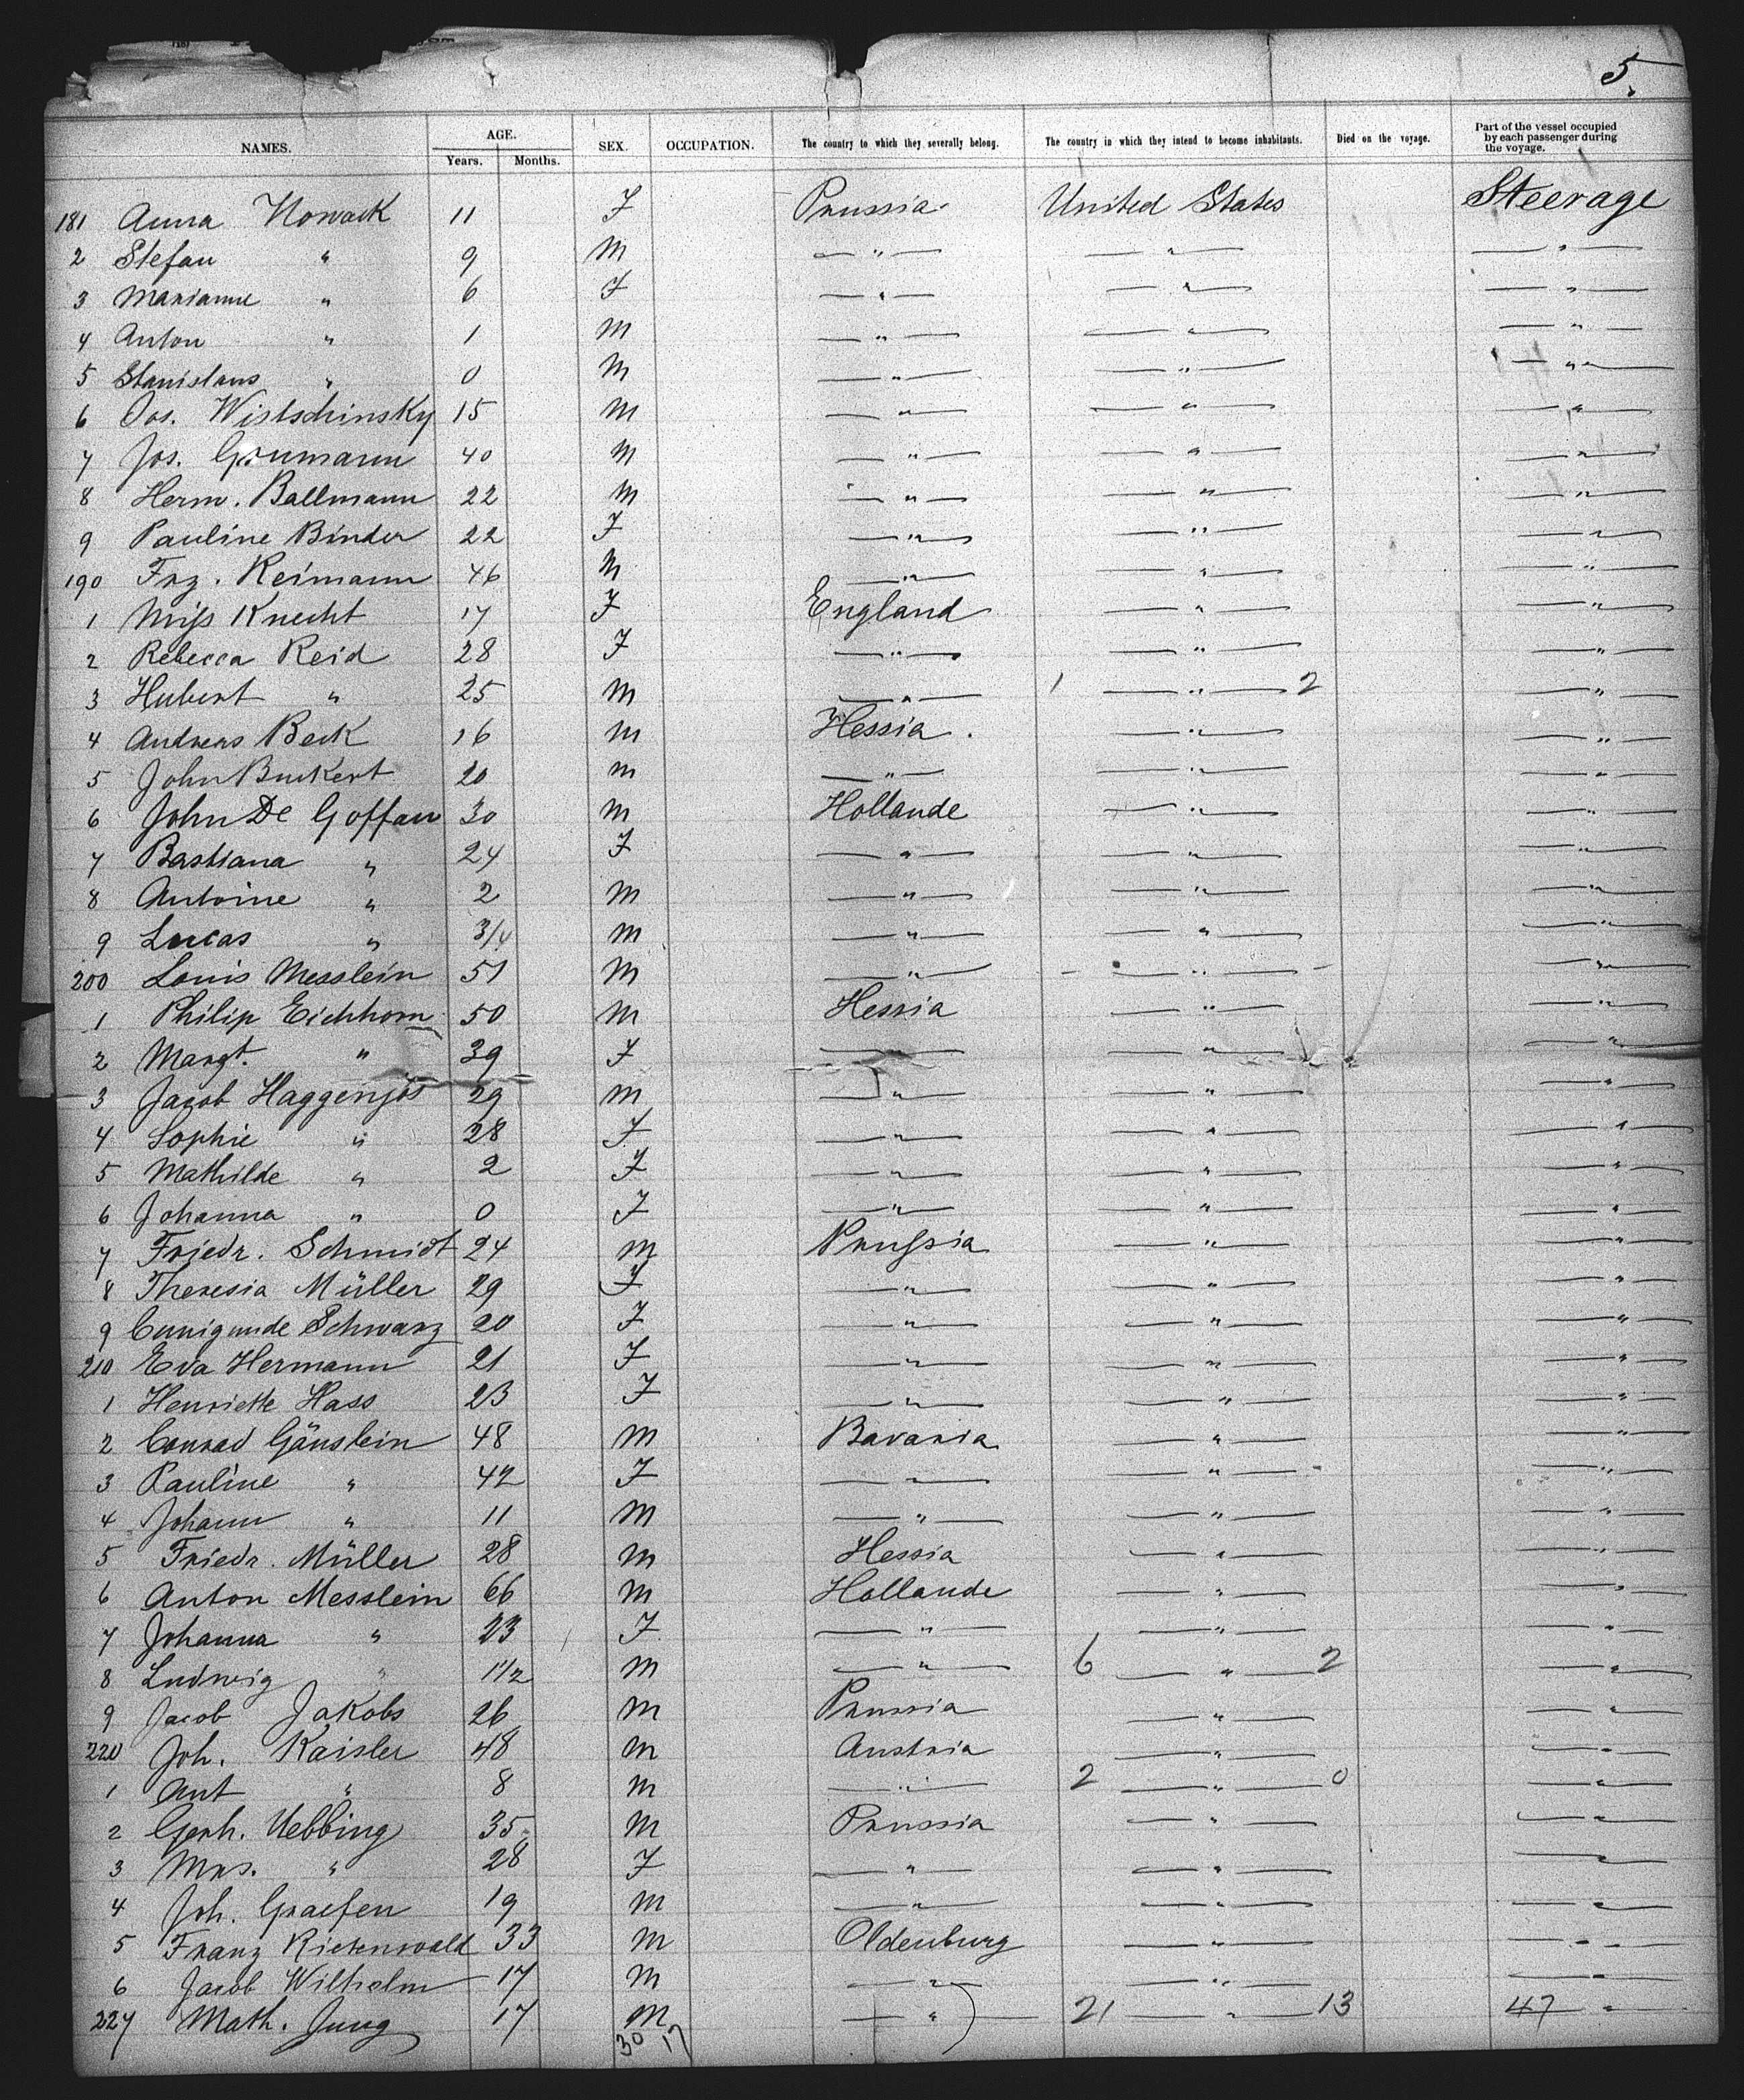 5.
NAMES. AGE. Years. Months. SEX. OCCUPATION. The country to which they severally belong. The country in which they intend to become inhabitants. Died on the voyage. Part of the vessel occupied by each passenger during the voyage.
181 Anna Nowack 11 F Prussia United States Steerage
2 Stefan " 9 M " " "
3 Marianne " 6 F " " "
4 Anton " 1 M " " "
5 Stanislaus " 0 M " " "
6 Jos. Wistschinsky 15 M " " "
7 Jos. 40 M " " "
8 Herm. Ballmann 22 M " " "
9 Pauline Binder 22 F " " "
190 Frz. Reimann 46 M " " "
1 Miss Knecht 17 F England " "
2 Rebecca Reid 28 F " " "
3 Hubert " 25 M " 1 " 2 "
4 Andreas Beck 16 M Hessia. " "
5 John Buckert 20 M " " "
6 John De Goffau 30 M Hollande " "
7 Bastiana " 24 F " " "
8 Antoine " 2 M " " "
9 Lucas " 3/4 M " " "
200 Louis Messlein 51 M " " "
1 Philip Eichhorn 50 M Hessia " "
2 Margt. " 39 F " " "
3 Jacob Haggenjos 29 M " " "
4 Sophie " 28 F " " "
5 Mathilde " 2 F " " "
6 Johanna " 0 F " " "
7 Friedr. Schmidt 24 M Prussia " "
8 Theresia Müller 29 F " " "
9 Cunigunde Schwarz 20 F " " "
210 Eva Hermann 21 F " " "
1 Henriette Hass 23 F " " "
2 Conrad Gänslein 48 M Bavaria " "
3 Pauline " 42 F " " "
4 Johann " 11 M " " "
5 Friedr. Müller 28 M Hessia " "
6 Anton Messlein 66 M Hollande " "
7 Johanna " 23 F " " "
8 Ludwig " 1 1/2 M " 6 " 2 "
9 Jacob Jakobs 26 M Prussia " "
220 Joh. Kaisler 48 M Austria " "
1 Ant " 8 M " 2 " 0 "
2 Gerh. Uebbing 35 M Prussia " "
3 Mrs. " 28 F " " "
4 Joh. Graefen 19 M " " "
5 Franz 33 M Oldenburg " "
6 Jacob Wilhelm 17 M " " "
227 Math. Jung 17 M " 21 " 13 47 "
30 17